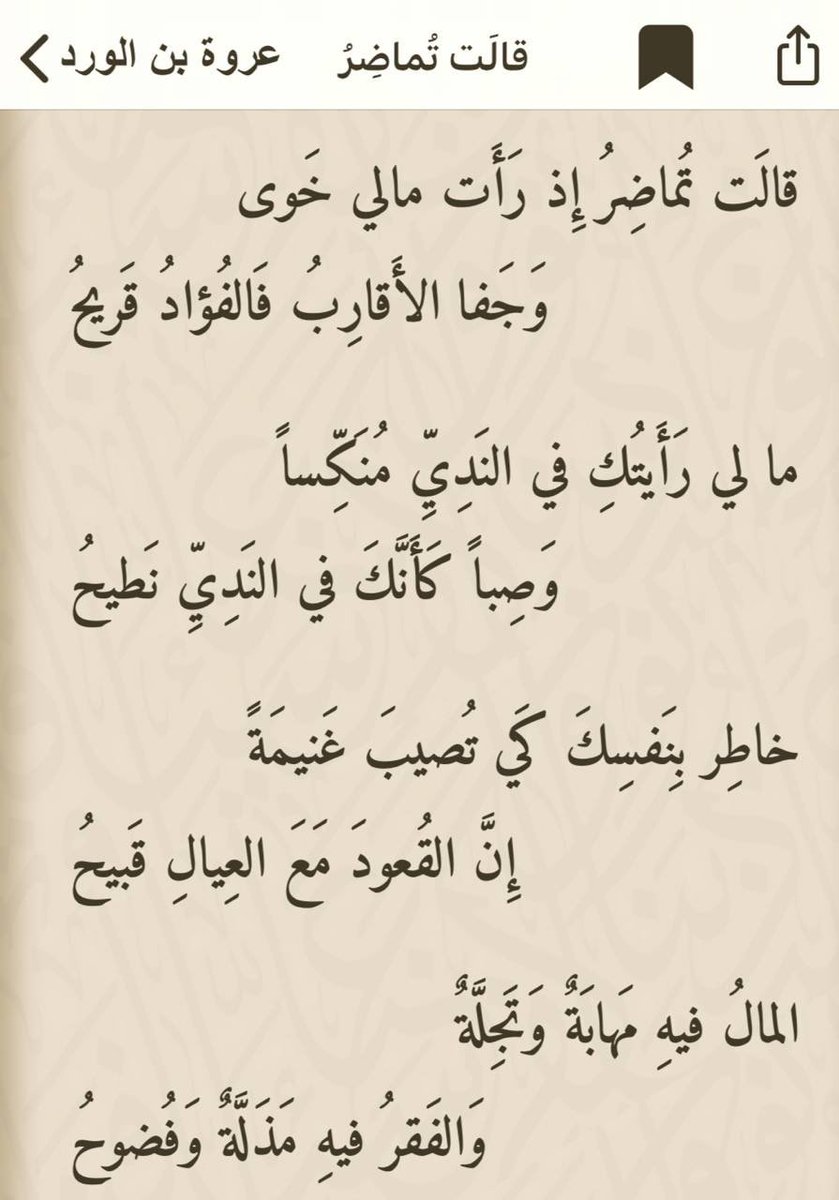 عروة بن الورد قالَت تُماضِرُ
قالَت تُماضِرُ إِذ رَأَت مالي خَوى
وَجَفا الأَقارِبُ فَالفُؤادُ قَريحُ
ما لي رَأَيتُكِ في النَدِيِّ مُنَكِّساً
وَصِباً كَأَنَّكَ في النَدِيِّ نَطيحُ
خاطِر بِنَفسِكَ كَي تُصيبَ غَنيمَةً
إِنَّ القُعودَ مَعَ العِيالِ قَبيحُ
المالُ فيهِ مَهابَةٌ وَتَجِلَّةٌ
وَالفَقرُ فيهِ مَذَلَّةٌ وَفُضوحُ